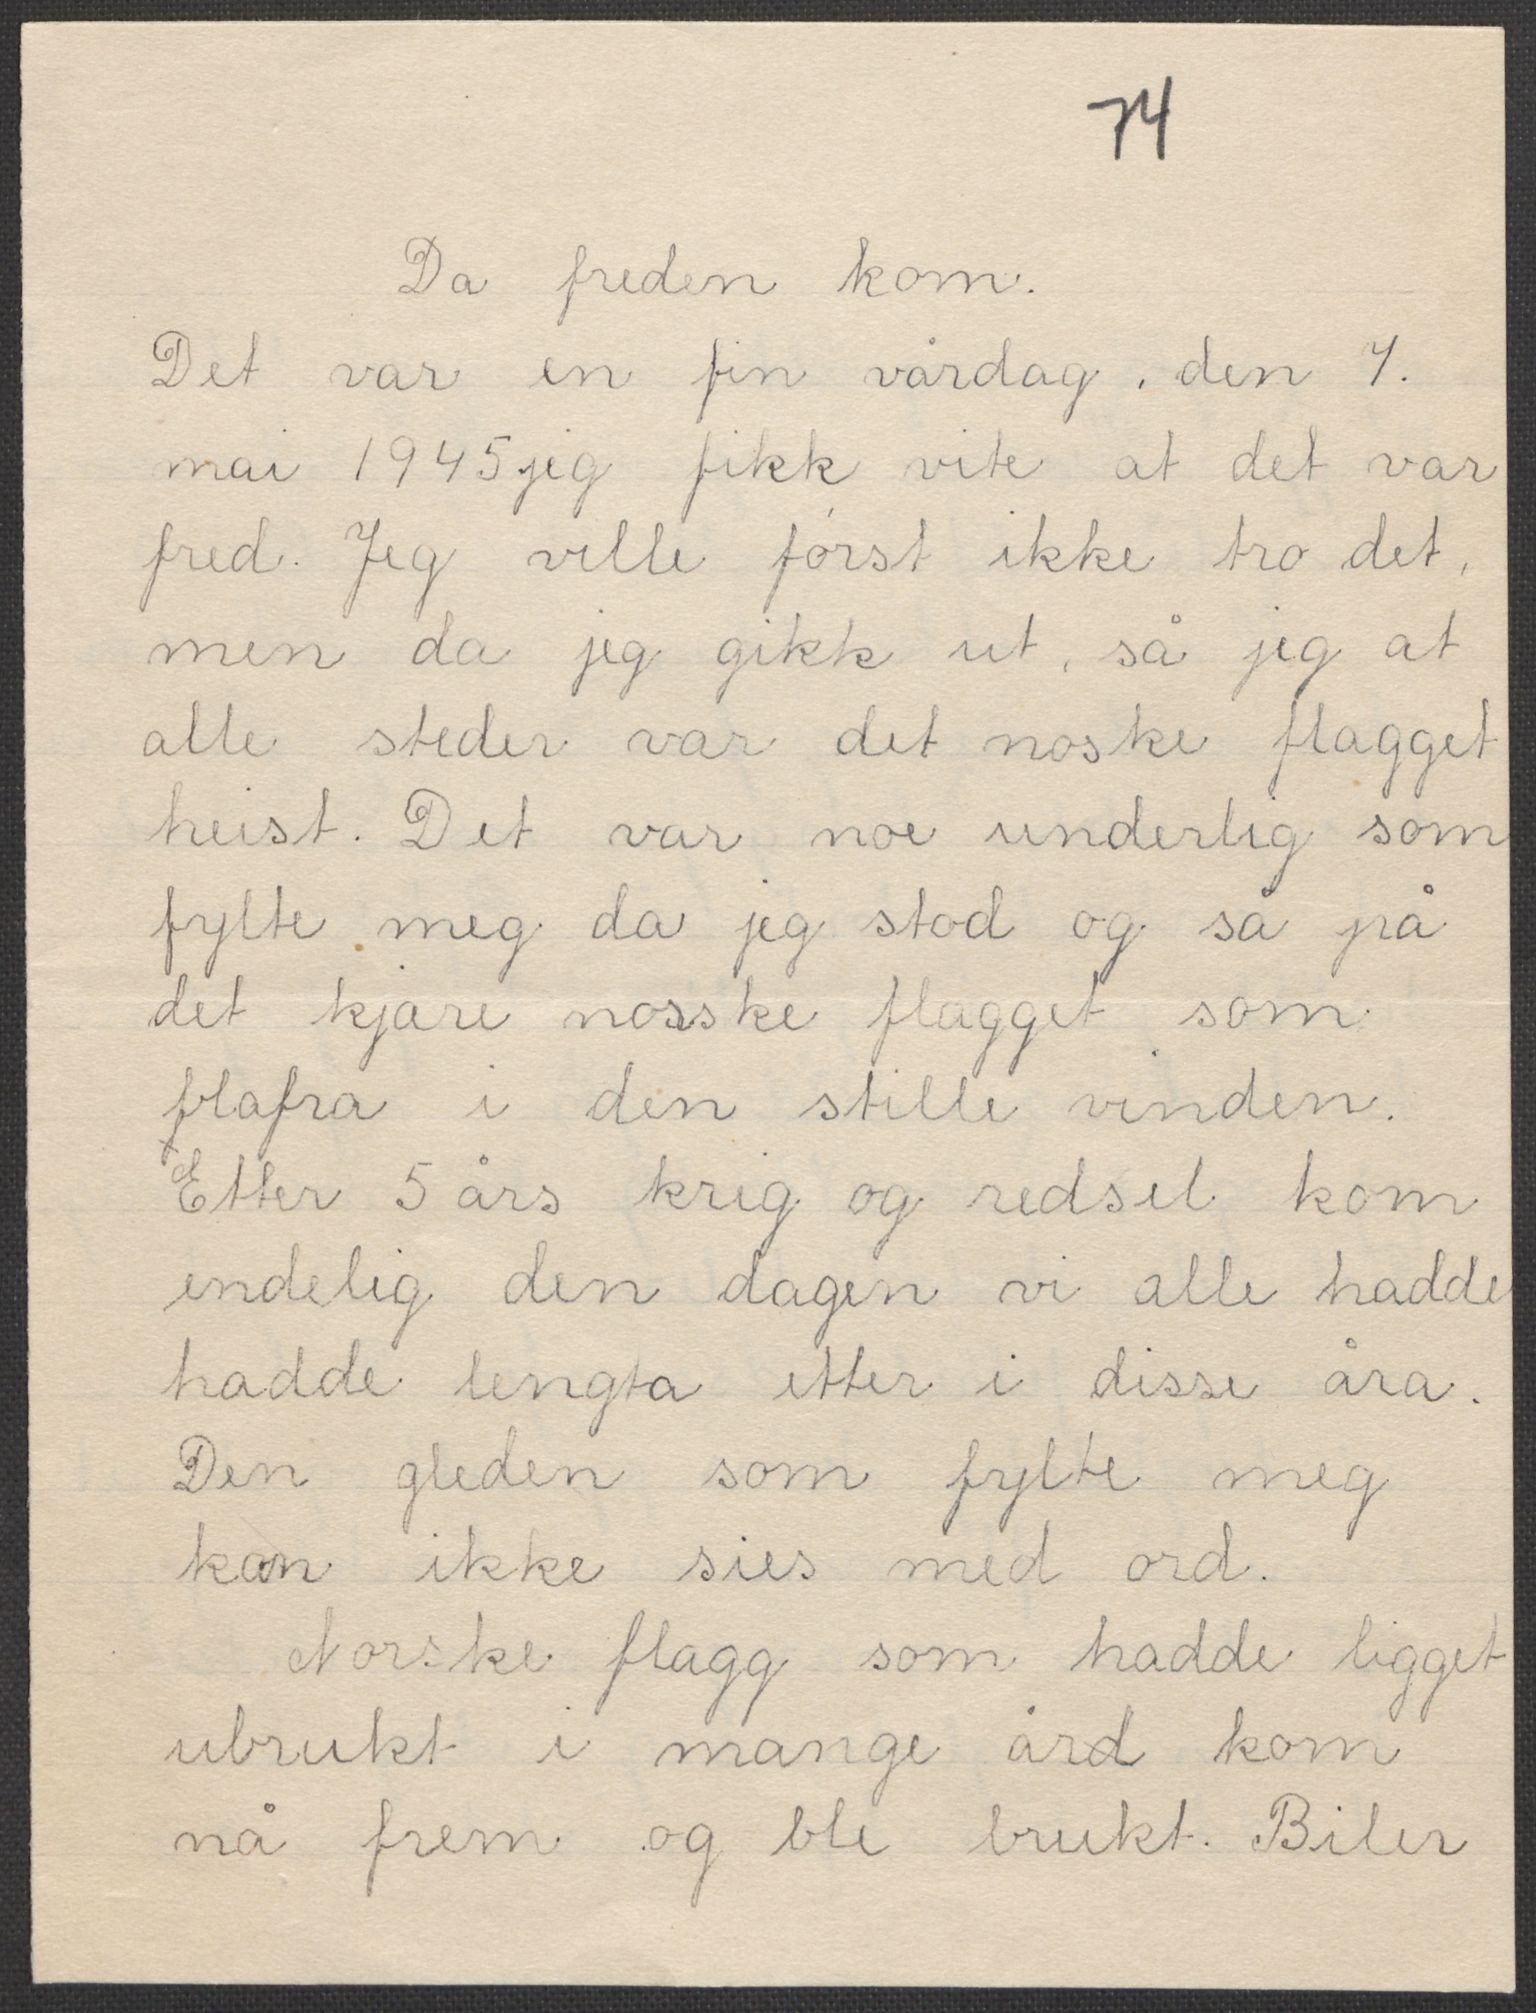 74
Da freden kom.
Det var en fin vårdag, den 7.
mai 1945 jeg fikk vite at det var
fred. Jeg ville først ikke tro det,
men da jeg gikk ut, så jeg at
alle steder var det noske flagget
heist. Det var noe underlig som
fylte meg da jeg stod og så på
det kjære nosske flagget som
flafra i den stille vinden.
Etter 5 års krig og redsel kom
endelig den dagen vi alle hadde
hadde lengta etter i disse åra.
Den gleden som fylte meg
kan ikke sies med ord.
Norske flagg som hadde ligget
ubrukt i mange kom
nå frem og ble brukt. Biler